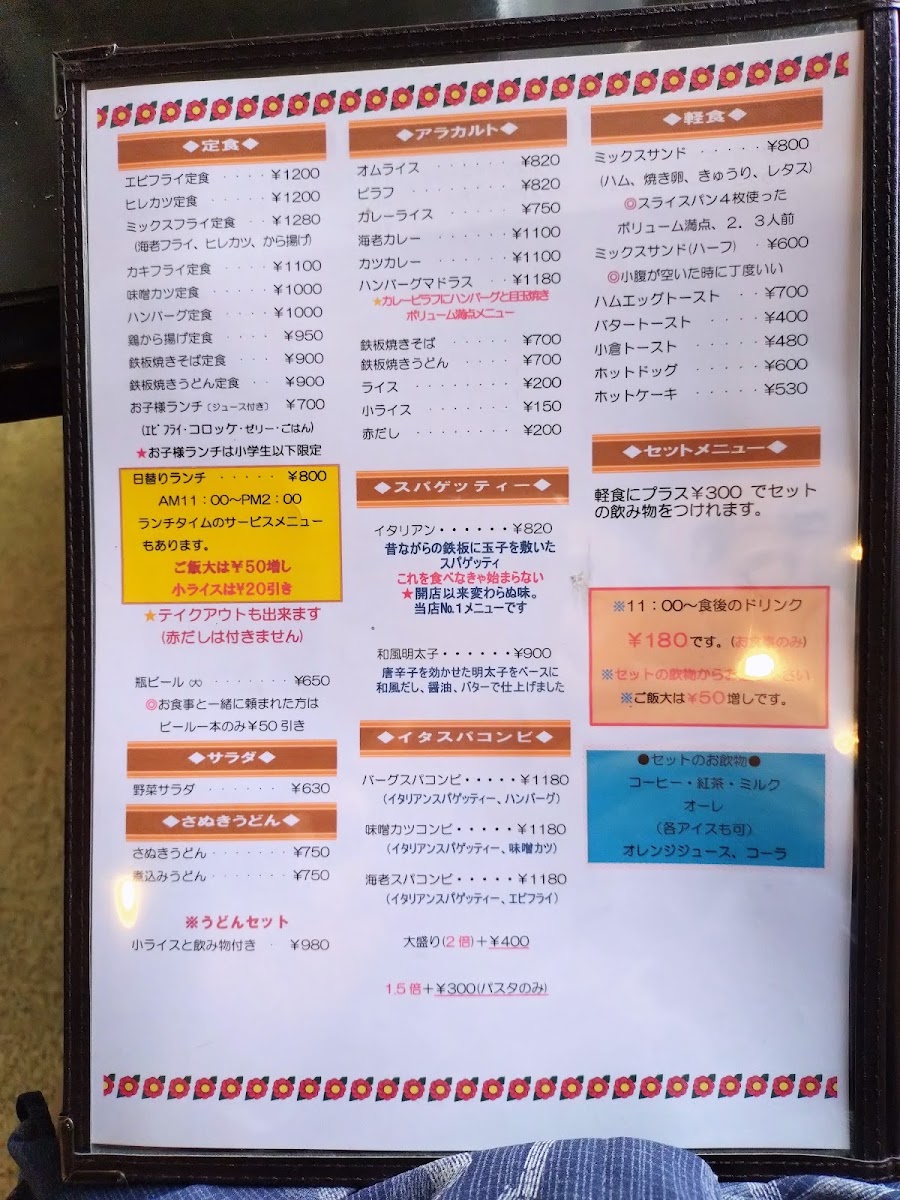 ◆定食◆
エビフライ定食 ····· ¥1200
ヒレカツ定食 ······ ¥1200
ミックスフライ定食 ··· ¥1280
(海老フライ、ヒレカツ、から揚げ)
カキフライ定食 ····· ¥1100
味噌カツ定食 ······ ¥1000
ハンバーグ定食 ····· ¥1000
鶏から揚げ定食 ···· ¥950
鉄板焼きそば定食 ··· ¥900
鉄板焼きうどん定食 ·· ¥900
お子様ランチ〔ジュース付き〕 ¥700
(エビフライ・コロッケ・ゼリー・ごはん)
★お子様ランチは小学生以下限定
日替りランチ ····· ¥800
AM11:00〜PM2:00
ランチタイムのサービスメニュー
もあります。
ご飯大は¥50増し
小ライスは¥20引き
★テイクアウトも出来ます
(赤だしは付きません)
瓶ビール ㈹ ······· ¥650
◎お食事と一緒に頼まれた方は
ビール一本のみ¥50引き
◆サラダ◆
野菜サラダ ······· ¥630
◆さぬきうどん◆
さぬきうどん ······· ¥750
煮込みうどん ······· ¥750
※うどんセット
小ライスと飲み物付き · ¥980
◆アラカルト◆
オムライス ······· ¥820
ピラフ ········· ¥820
カレーライス ······ ¥750
海老カレー ······· ¥1100
カツカレー ······· ¥1100
ハンバーグマドラス ··· ¥1180
★カレーピラフにハンバーグと目玉焼き
ボリューム満点メニュー
鉄板焼きそば ······ ¥700
鉄板焼きうどん ····· ¥700
ライス ········· ¥200
小ライス ········ ¥150
赤だし ········· ¥200
◆スパゲッティー◆
イタリアン・・・・・・¥820
昔ながらの鉄板に玉子を敷いた
スパゲッティ
これを食べなきゃ始まらない
★開店以来変わらぬ味。
当店No.1メニューです
。
和風明太子・・・・・・¥900
唐辛子を効かせた明太子をベースに
和風だし、醤油、バターで仕上げました
◆イタスパコンビ◆
バーグスパコンビ・・・・・¥1180
(イタリアンスパゲッティー、ハンバーグ)
味噌カツコンビ・・・・・¥1180
(イタリアンスパゲッティー、味噌カツ)
海老スパコンビ・・・・・¥1180
(イタリアンスパゲッティー、エビフライ)
大盛り(2倍)+¥400
1.5倍+¥300(パスタのみ)
◆軽食◆
ミックスサンド ····· ¥800
(ハム、焼き卵、きゅうり、レタス)
◎スライスパン4枚使った
ボリューム満点、2.3人前
ミックスサンド(ハーフ) · ¥600
◎小腹が空いた時に丁度いい
ハムエッグトースト ·· ¥700
バタートースト ···· ¥400
小倉トースト ····· ¥480
ホットドッグ ····· ¥600
ホットケーキ ····· ¥530
◆セットメニュー◆
軽食にプラス¥300でセット
の飲み物をつけれます。
※11:00〜食後のドリンク
¥180です。(お食事のみ)
※セットの飲物からお
※ご飯大は¥50増しです。
●セットのお飲物●
コーヒー・紅茶・ミルク
オーレ
(各アイスも可)
オレンジジュース、コーラ